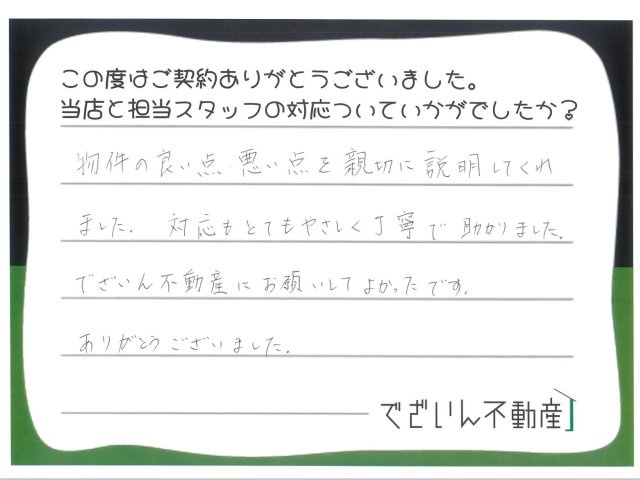 この度はご契約ありがとうございました。
当店と担当スタッフの対応ついていかがでしたか？
物件の良い点・悪い点を親切に説明してくれ
ました。対応もとてもやさしく丁寧で助かりました。
でざいん不動産にお願いしてよかったです。
ありがとうございました。
でざいん不動産